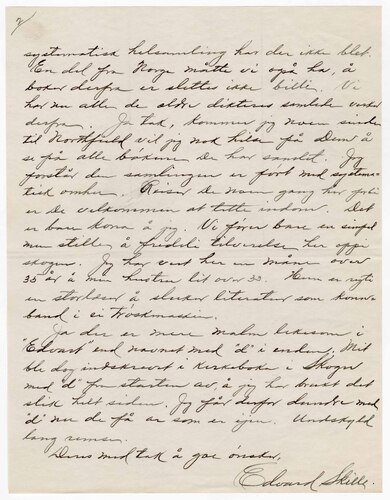 2/
systematisk helsamling har der ikke blet.
En del fra Norge måtte vi også ha, å
bøker derfra er slettes ikke billie. Vi
har nu alle de eldre dikteres samlede verker
derfra. Ja tak, kommer jeg noen sinde
til Northfield vil jeg nok hilse på Dem å
se på alle bøkene De har samlet. Jeg
forstår den samlingen er gort med systema-
tisk omhu. Reiser De noen gang her forbi
er De velkommen at titte indom. Det
er bare kona å jeg. Vi fører bare en simpel
men stille å fredelig tilverelse her oppi
skogen. Jeg har vert her en måne over
35 år å min hustru lit over 30. Hun er
en storleser å sluker literatur som korn-
band i ei treskmaskin.
Ja der er mere malm liksom i
"Edvart" end navnet med "d" i enden. Mit
ble dog indskrevet i kirkeboka i Skogn
med "d" fra starten av, å jeg har brukt det
slik helt siden. Jeg får derfor dundre med
"d" nu de få år som er igjen. Undskyld
lang remse.
Deres med tak å goe ønsker,
Edvard Skille.